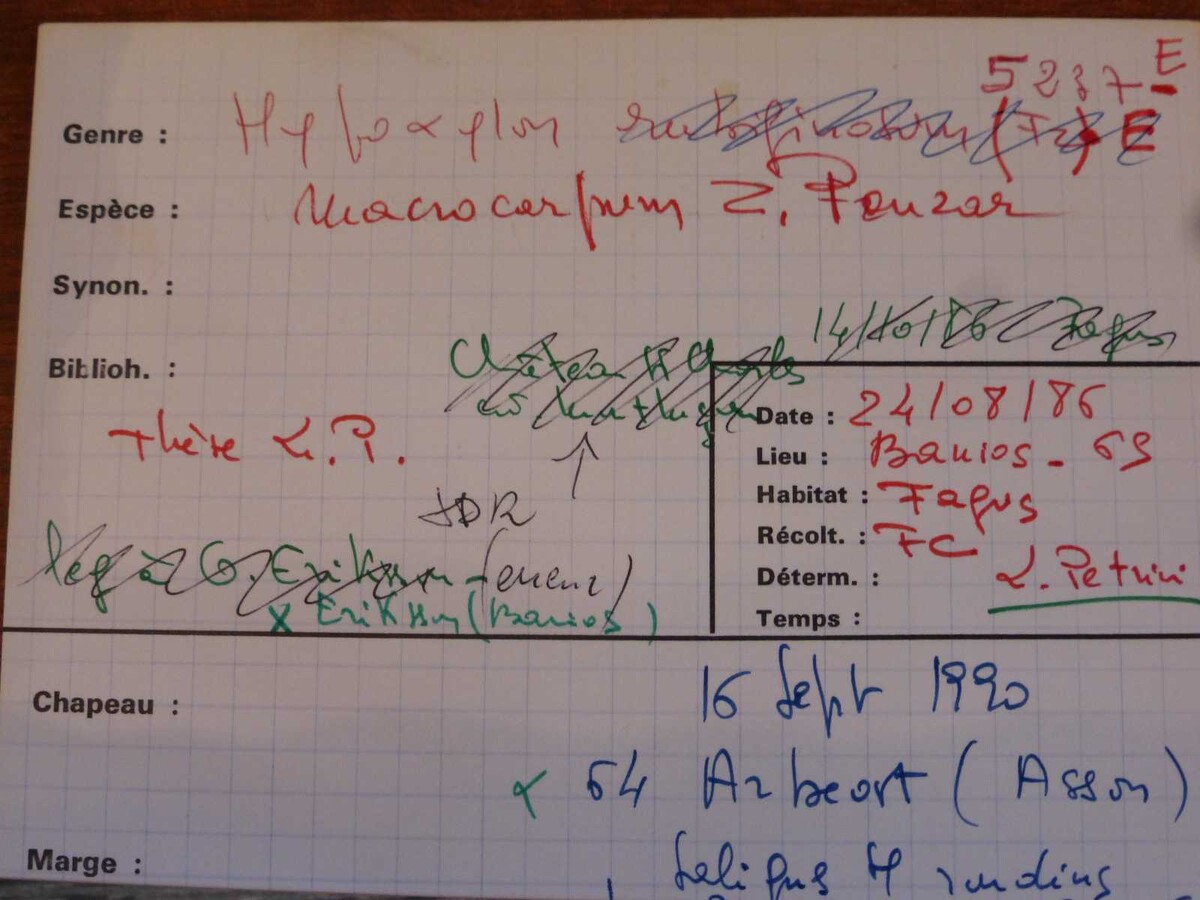 5237 E
Genre : Hypoxylon rubiginosum (Fr) E
Espèce : macrocarpum Z. Pouzar
Synon. :
14/10/86 Fagus
Biblioh. :
Date : 24/08/86
thèse L.P.
Lieu : Banios - 65
Habitat : Fagus
JDR
Récolt. : FC
leg à G. Eriksson - (erreur)
Déterm. : L. Petrini
x Eriksson (Banios)
Temps :
Chapeau :
16 Sept 1990
64 Arbeost (Asson)
Marge :